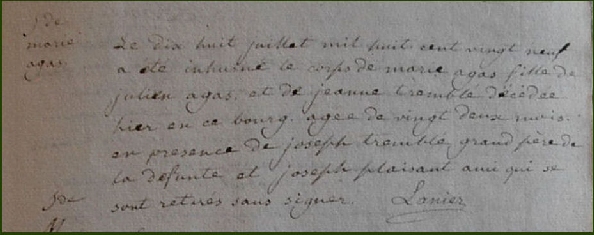 S de
marie
agas
Le dix huit juillet mil huit cent vingt neuf
a été inhumé le corps de marie agas fille de
julien agas. et de jeanne tremble décédée
hier en ce bourg. agee de vingt deux mois.
en presence de joseph tremble, grand père de
la defunte et joseph plaisant ami qui se
sont retires sans signer. Lanier
S de